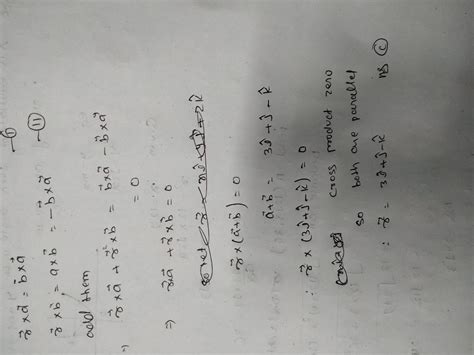 r⃗×a⃗ = b⃗×a⃗ —(I)
r⃗×b⃗ = a×b⃗ = -b⃗×a⃗ —(II)
add them
⇒ r⃗×a⃗ + r⃗×b⃗ = b⃗×a⃗ - b⃗×a⃗
= 0
⇒ r⃗×a⃗ + r⃗×b⃗ = 0
r⃗×(a⃗+b⃗) = 0
a⃗+b⃗ = 3î+ĵ-k̂
∴ r⃗×(3î+ĵ-k̂) = 0
cross product zero
so both are parallel
∴ r⃗ = 3î+ĵ-k̂ ns (c)